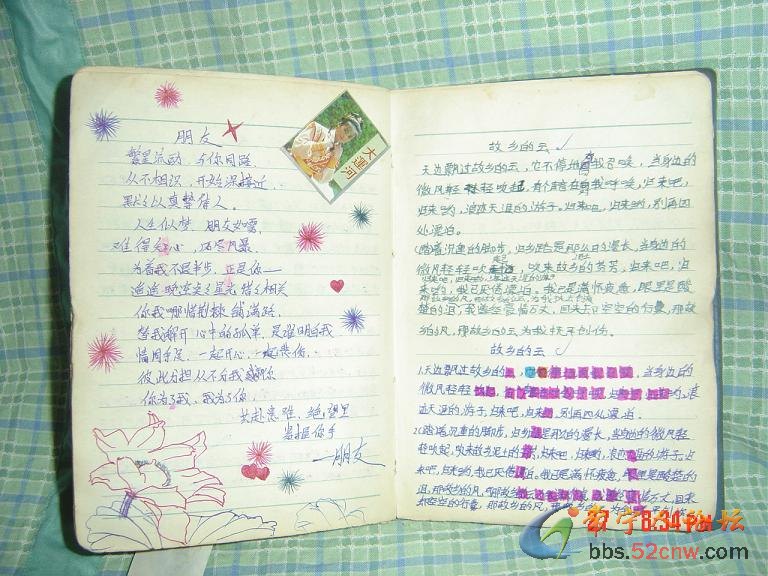 朋友
繁星流动 与你同路
从不相识 开始深接近
默默以真挚待人
人生似梦 朋友如雾
难得知心 风景
为着我不退半步 正是你
遥遥晚空点点星光息息相关
你我哪怕荆棘铺满路
替我解开心中的孤单 是谁明白我
情同手足 一起开心 一起悲伤
彼此分担从不分我或你
你为了我 我为了你
共赴患难 绝望里
紧握你手
——朋友
大運河
故乡的云
天边飘过故乡的云,它不停地向我召唤,当身边的
微风轻轻吹起,有个声音在对我呼唤,归来吧,
归来哟,浪迹天涯的游子。归来吧,归来哟,别再四
处漂泊。
踏着沉重的脚步,归乡路是那么的漫长,当身边的
微风轻轻吹起,吹来故乡的芬芳,归来吧,归
来哟,我已厌倦漂泊。我已是满怀疲惫,眼里是酸
楚的泪,我曾经豪情万丈,归来却空空的行囊,那故
乡的风,那故乡的云为我抚平创伤。
故乡的云
1.天边飘过故乡的 当身边的
微风轻轻 浪
迹天涯的游子,归来吧,归来 别再四处漂泊
2.踏着沉重的脚步,归乡 是那么的漫长,当身边的微风轻
轻吹起,吹来故乡泥土的 归来吧,归来哟,浪迹 的游子,归
来吧,归来哟,我已厌倦 泊。我已是满怀疲惫 里是酸楚的
泪,那故乡的风,那故乡 万丈,回来
却空空的行囊,那故乡的风,
8:34 PM
论坛
bbs.52cnw.com